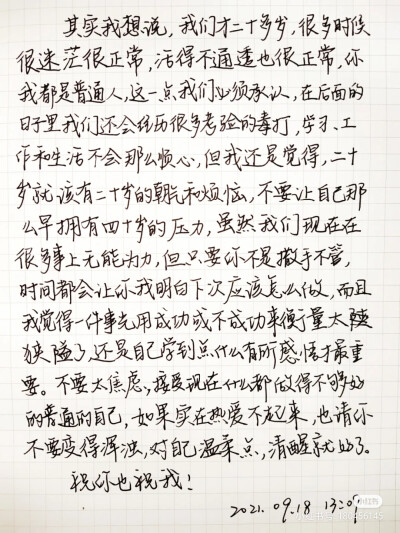 其实我想说，我们才二十多岁，很多时候
很迷茫很正常，活得不通透也很正常，你
我都是普通人，这一点我们必须承认，在后面的
日子里我们还会经历很多考验的毒打，学习、工
作和生活不会那么顺心，但我还是觉得，二十
岁就该有二十岁的朝气和烦恼，不要让自己那
么早拥有四十岁的压力，虽然我们现在在
很多事上无能为力，但只要你不是撒手不管，
时间都会让你我明白下次应该怎么做，而且
我觉得一件事先用成功或不成功来衡量太
狭隘了，还是自己学到点什么有所感悟才最重
要。不要太焦虑，接受现在什么都做得不够好
的普通的自己，如果实在热爱不起来，也请你
不要变得浑浊，对自己温柔点，清醒就好了。
祝你也祝我！
2021.09.18 13:09
小红书